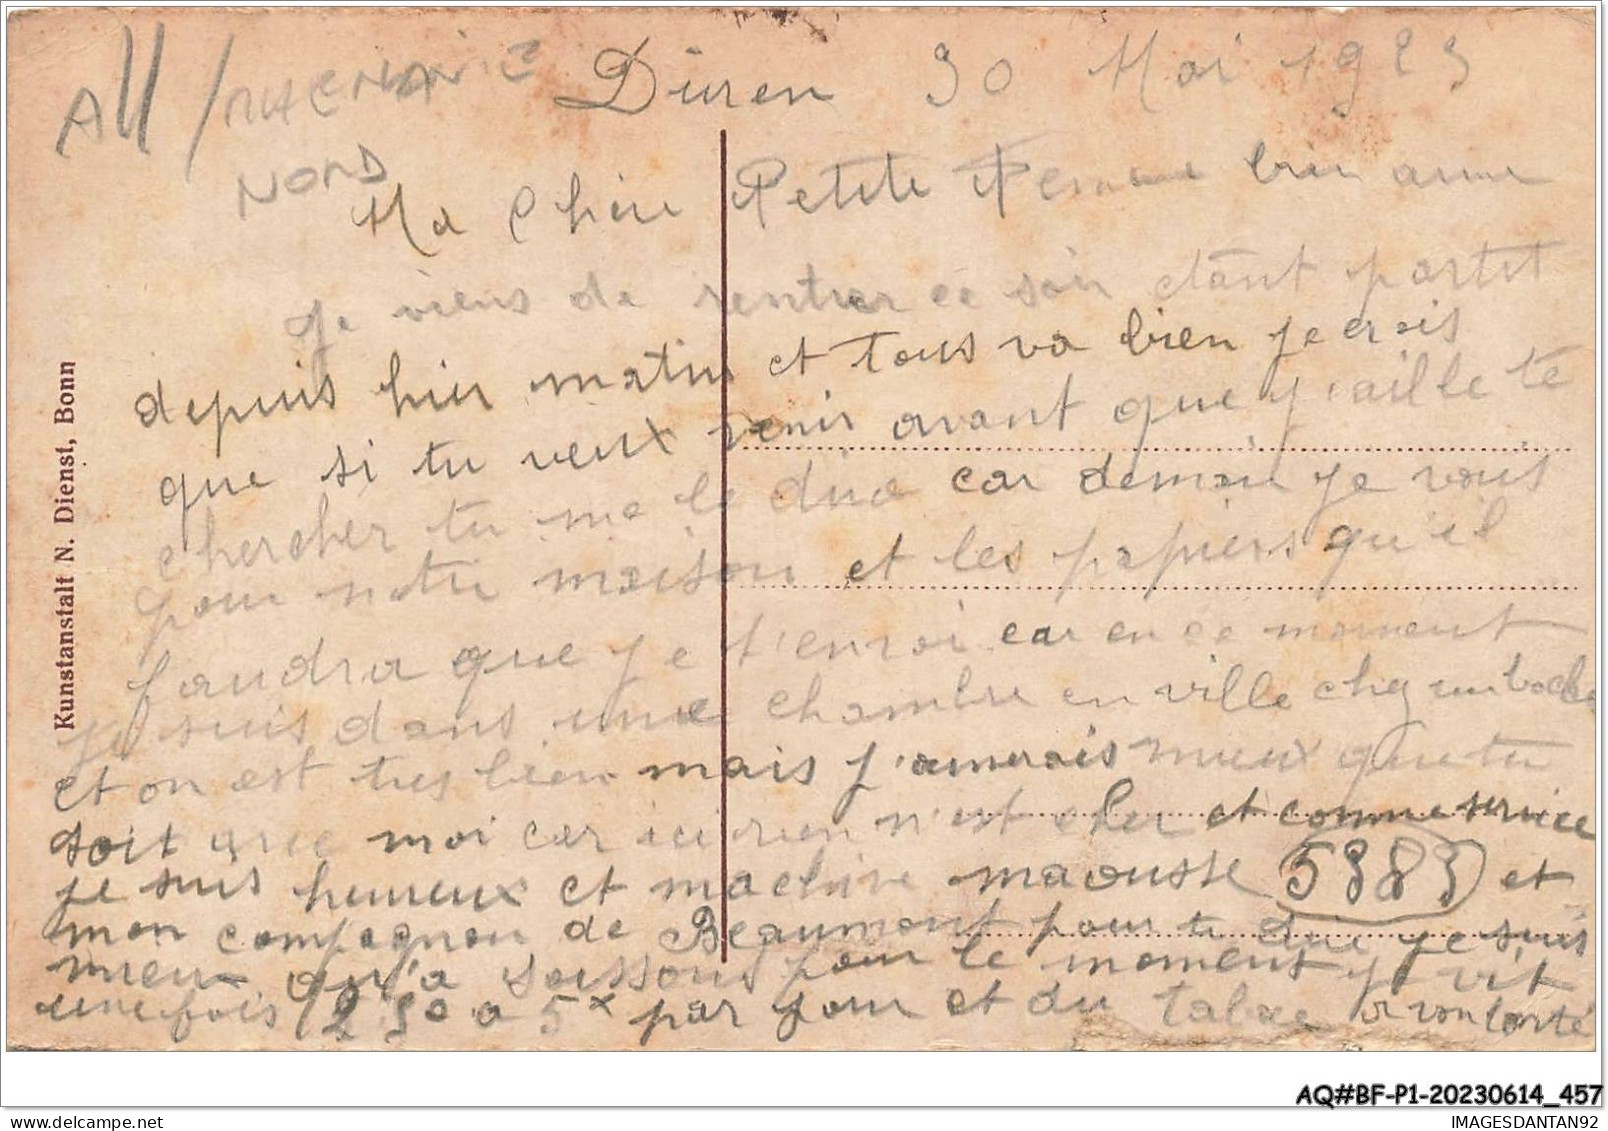 All/
NORD
Düren 30 Mai 1923
Ma Chère Petite Femme bien aimé
Je viens de rentrer ce soir étant partit
depuis hier matin et tous va bien je crois
que si tu veux venir avant que j'aille te
chercher tu me le dira car demain je vous
pour notre maison et les papiers qu'il
faudra que je t'envoi car en ce moment
je suis dans une chambre en ville chez un boche
et on est tres bien mais j'amerais mieux que tu
soit avec moi car ici rien n'est cher et comme service
je suis heureux et machine maousse 5383 et
mon compagnon de Beaumont pour te dire je suis
mieux qu'a Soissons pour le moment j vit
une fois 2 50 a 5x par jour et du tabac a volonté
Kunstanstalt N. Dienst, Bonn
AQ#BF-P1-20230614_457
IMAGESDANTAN92